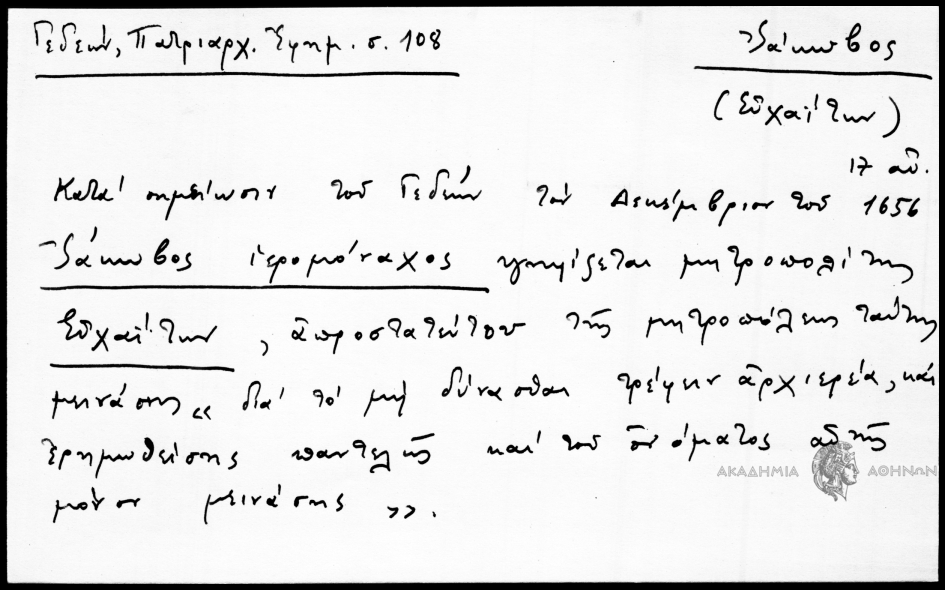 Γεδεών, Πατριαρχ. Ἐφημ. σ. 108
Ἰάκωβος
(Εὐχαΐτων)
17 αἰ.
Κατά σημείωσιν τοῦ Γεδεών τόν Δεκέμβριον τοῦ 1656
Ἰάκωβος ἱερομόναχος ψηφίζεται μητροπολίτης
Εὐχαΐτων, ἀπροστατεύτου τῆς μητροπόλεως ταύτης
μεινάσης « διά τό μή δύνασθαι τρέφειν ἀρχιερέα, καί
ἐρημωθείσης παντελῶς καί τοῦ ὀνόματος αὐτῆς
μόνον μεινάσης ».
ΑΚΑΔΗΜΙΑ ΑΘΗΝΩΝ